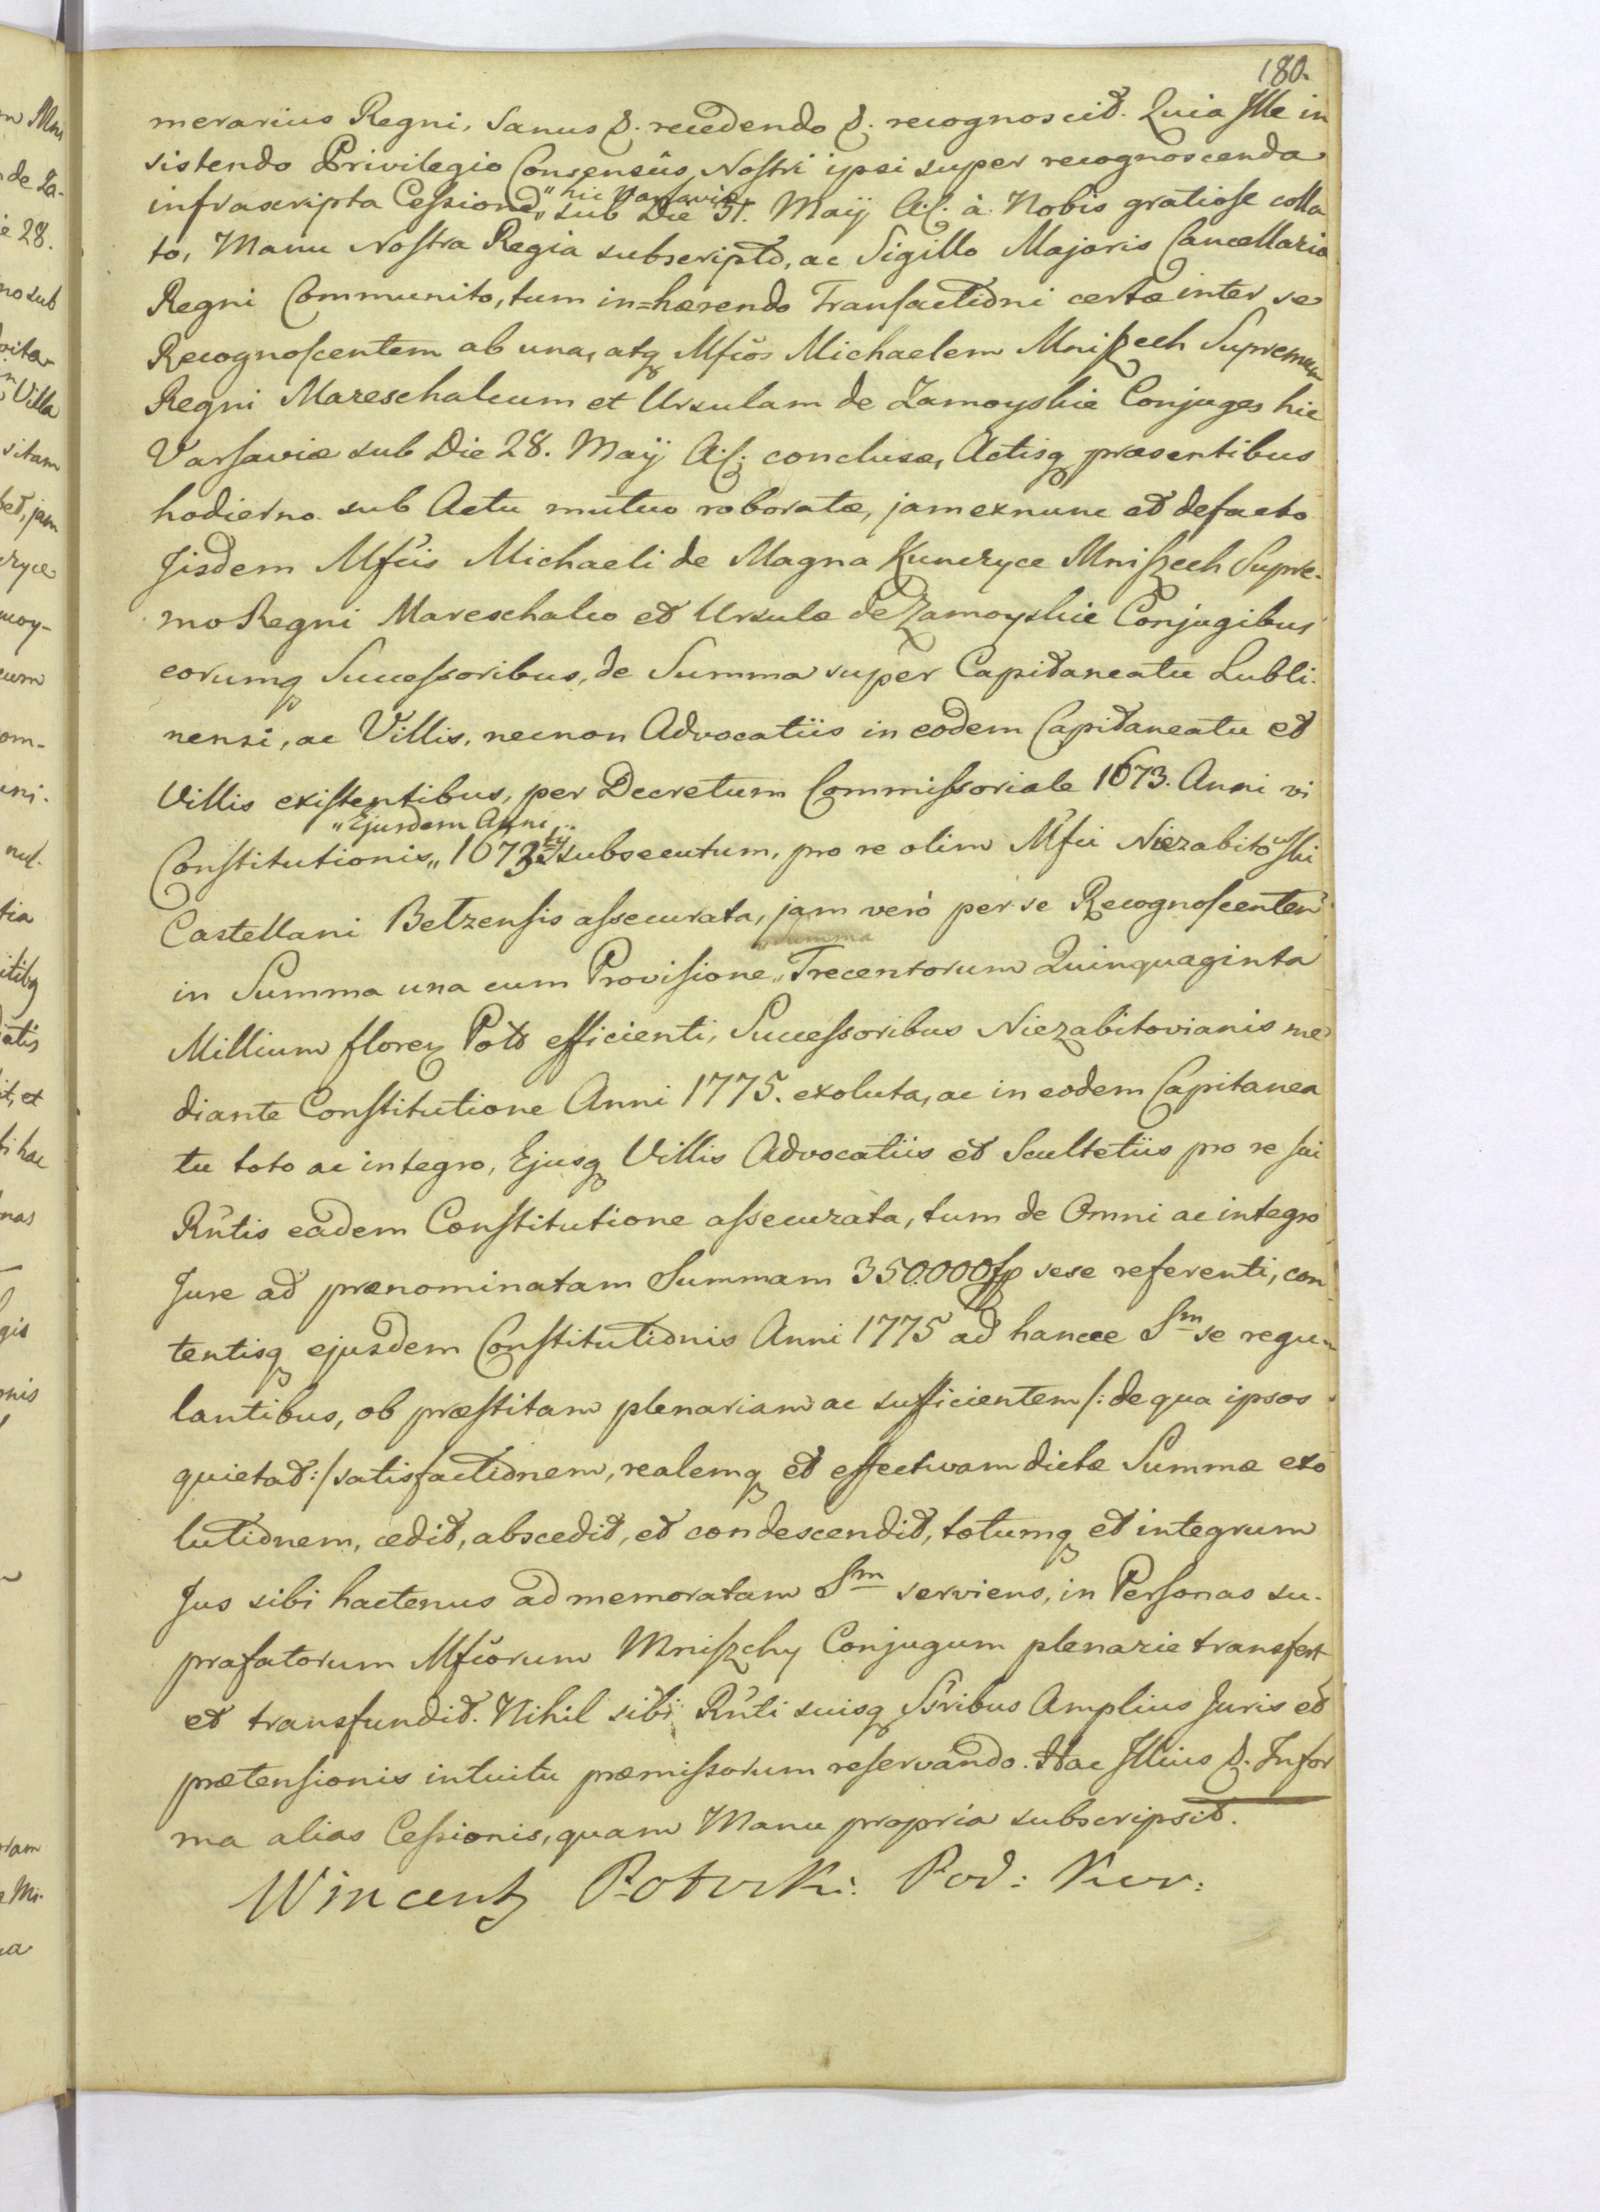 180.
merarius Regni, Sanus &. recedendo &. recognoscit. Quia Ille in
sistendo Privilegio Consensûs Nostri ipsi super recognoscenda
infrascripta Cessione, „hic Varsaviæ
sub Die 31. Maÿ A:C: à Nobis gratiose colla
to, Manu Nostra Regia subscripto, ac Sigillo Majoris Cancellaria
Regni Communito, tum in=hærendo Transactioni certæ inter se
Recognoscentem ab una, atq Mfcos Michaelem Mniszech Supremum
Regni Mareschalcum et Ursulam de Zamoyskie Conjuges hic
Varsaviæ sub Die 28. Maÿ A:C: conclusæ, Actisq præsentibus
hodierno sub Actu mutuo roboratæ, jam exnunc et defacto
Iisdem Mfcis Michaeli de Magna Kunczyce Mniszech Supre-
mo Regni Mareschalco et Ursulæ de Zamoyskie Conjugibus
eorumq Successoribus, de Summa super Capitaneatu Lubli-
nensi, ac Villis, necnon Advocatiis in eodem Capitaneatu et
Villis existentibus, per Decretum Commissoriale 1673. Anni vi
„Ejusdem Anni„
Constitutionis „ 1673 subsecutum, pro re olim Mfci Niezabitowski
Castellani Betzensis assecurata, jam verò per se Recognoscentem
in Summa una cum Provisione „ Trecentorum Quinquaginta
Millium floren Pol efficienti, Successoribus Niezabitovianis me
diante Constitutione Anni 1775. exoluta, ac in eodem Capitanea
tu toto ac integro, Ejusq Villis Advocatiis et Scultetiis pro re sui
Rntis eâdem Constitutione assecurata, tum de Omni ac integro
Jure ad prænominatam Summam 350.000 fp sese referenti, con
tentisq ejusdem Constitutionis Anni 1775 ad hancce Sm se regu-
lantibus, ob præstitam plenariam ac sufficientem /: de qua ipsos
quietat :/ satisfactionem, realemq et effectivam dictæ Summæ exo
lutionem, cedit, abscedit, et condescendit, totumq et integrum
Jus sibi hactenus ad memoratam Sm serviens, in Personas su-
prafatorum Mfcorum Mniszchy Conjugum plenarie transfert
et transfundit. Nihil sibi Rnti suisq Ssribus Amplius Juris et
prætensionis intuitu præmissorum reservando. Hac Illius &. Infor
ma alias Cessionis, quam Manu propria subscripsit.
Wincenty Potocki: Pod: Kor: